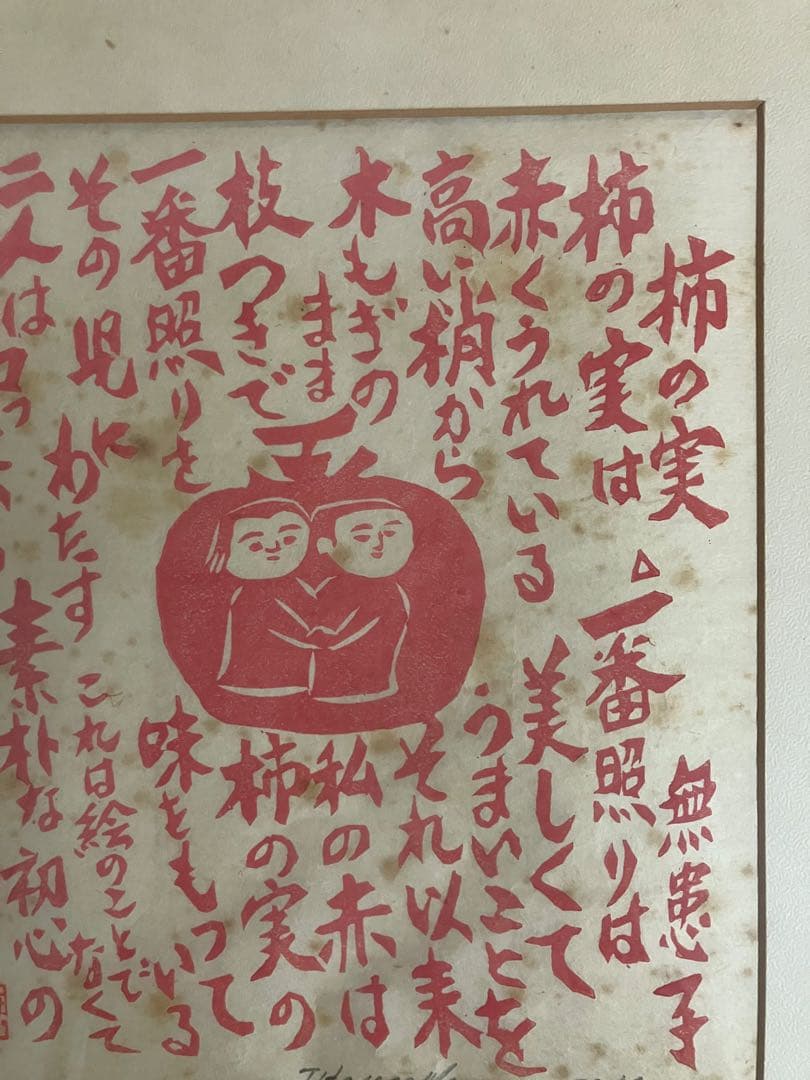 柿の実
無患子
柿の実は
赤くうれている
高い梢から
木もぎの
まま
枝つきで
一番照りを
その児にわたす
二人は
△一番照りは
美しくて
うまいことを
それ以来
私の赤は
柿の実の
味をもって
いる
これは絵のことで
なくて
素朴な初心の